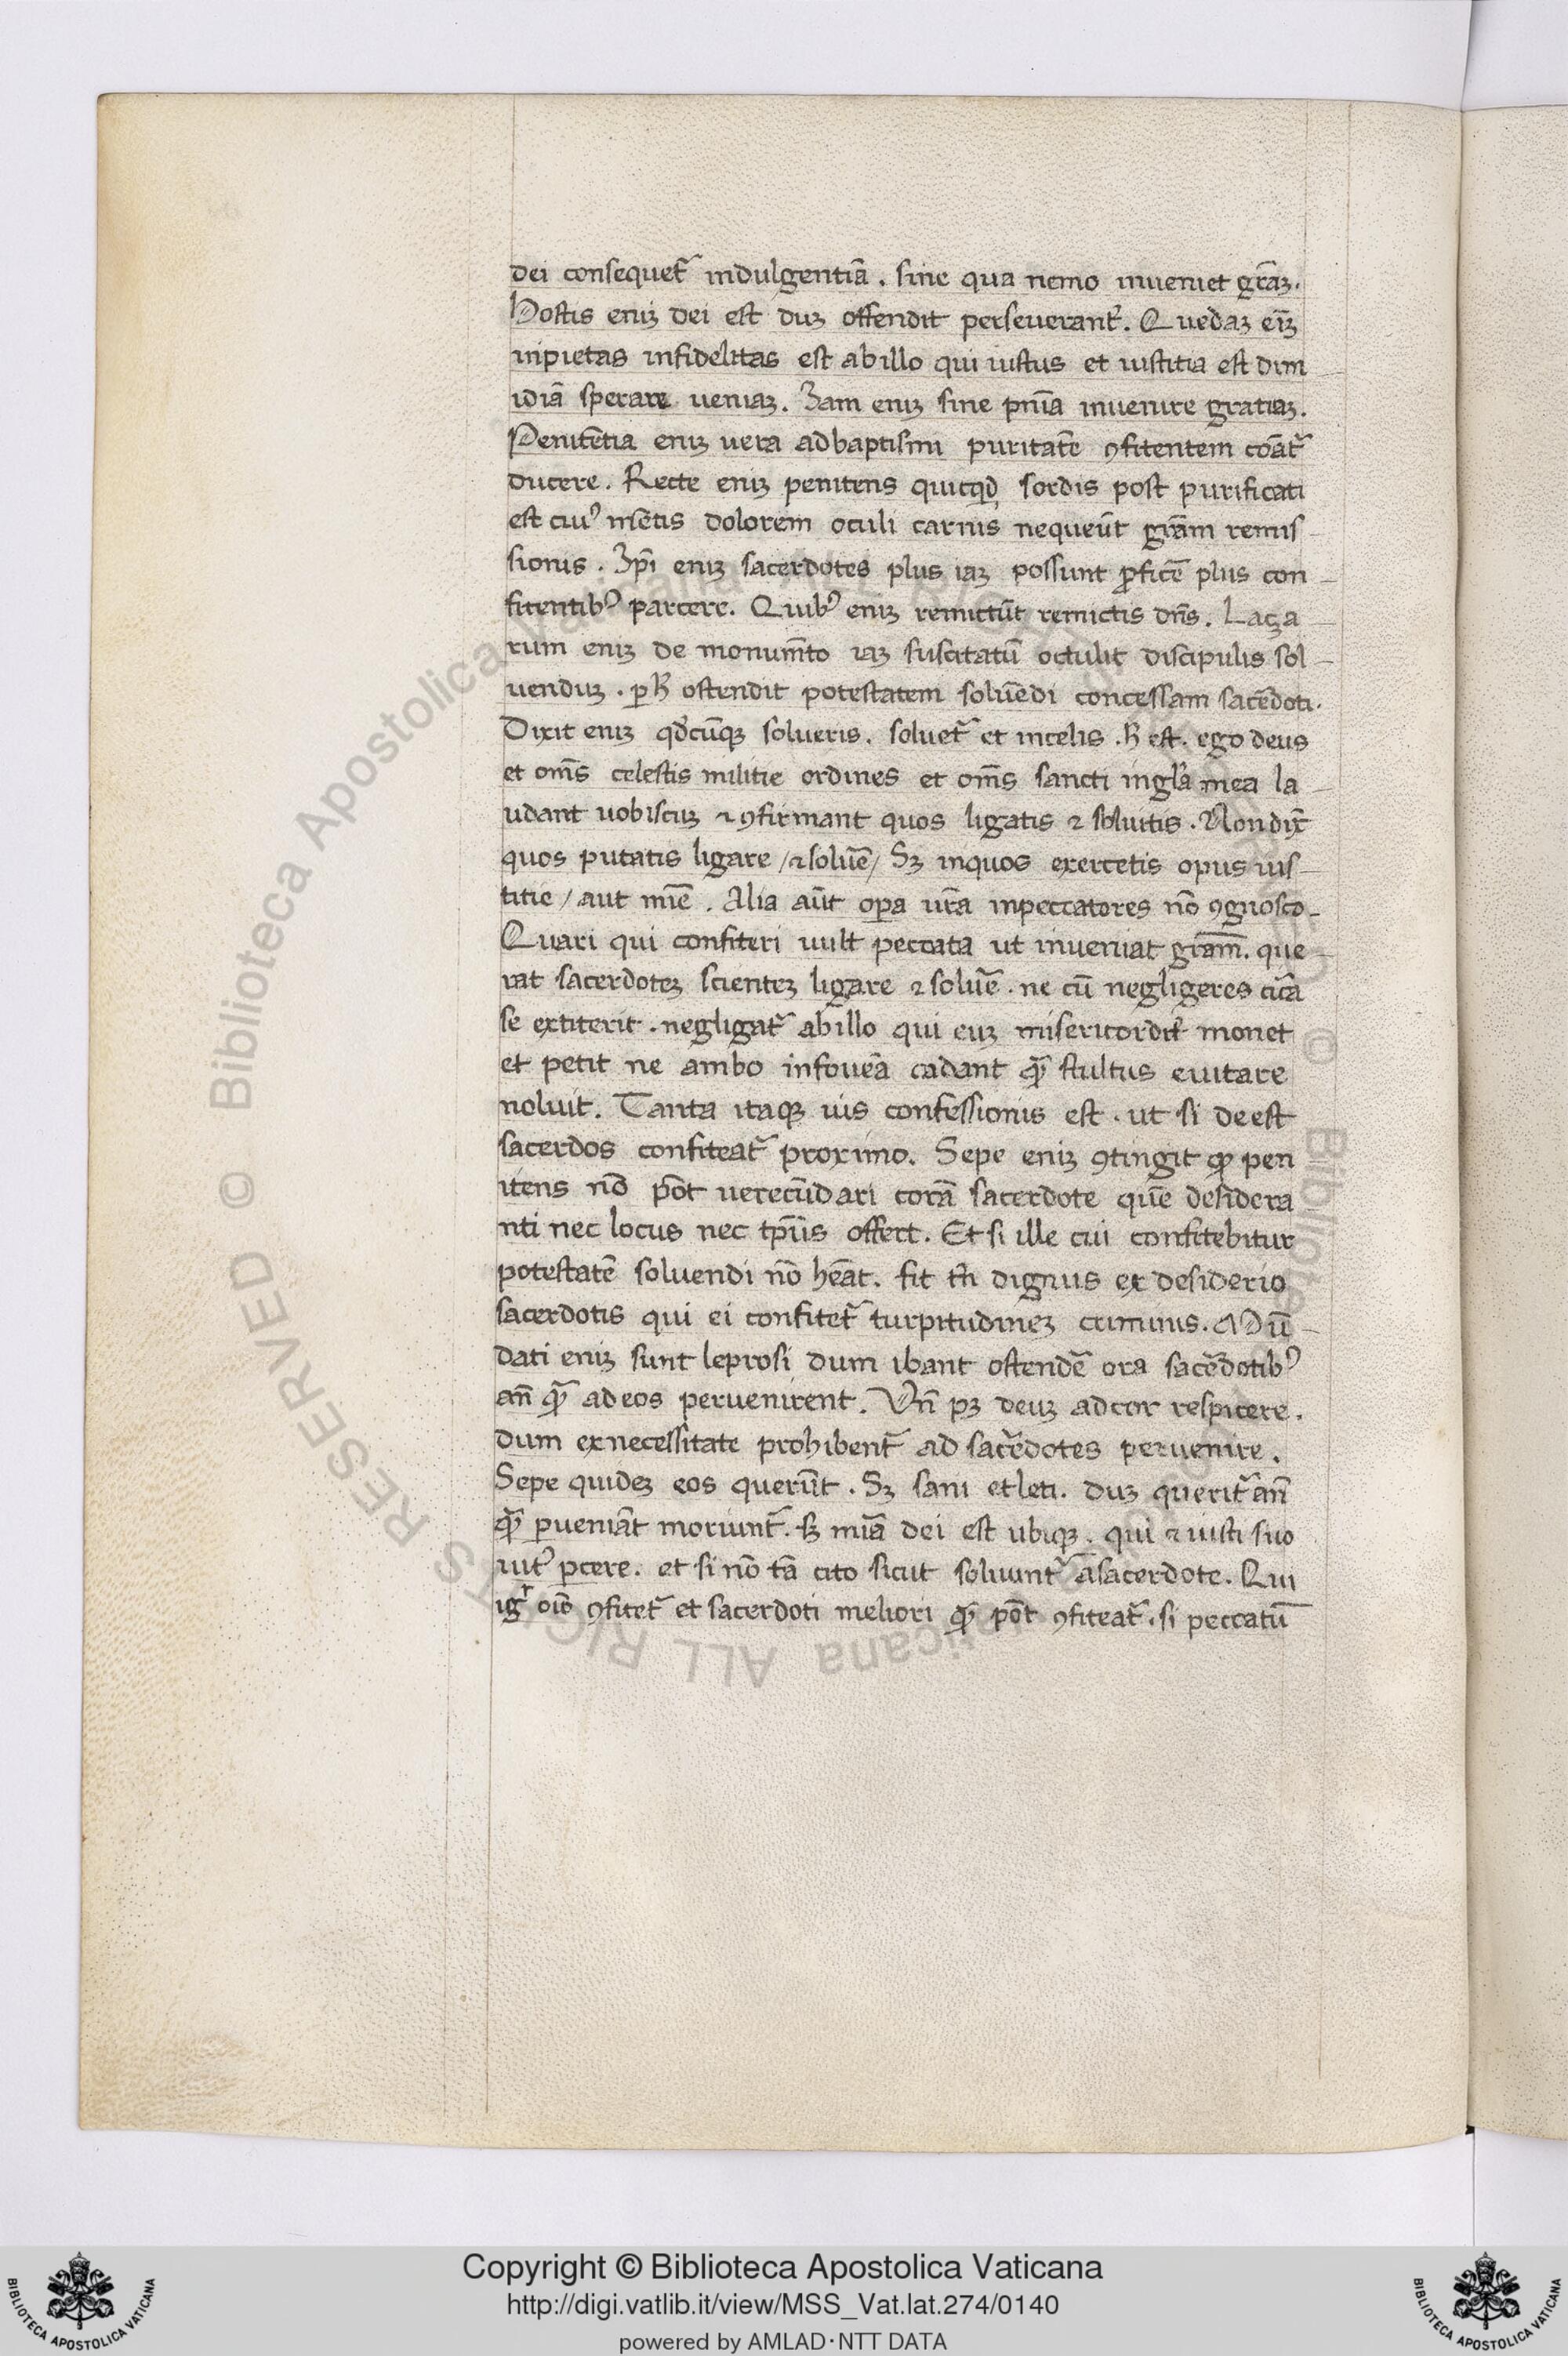 dei consequet᷑ indulgentiā. sine qua nemo inueniet gr̄aꝫ.
Hostis eniꝫ dei est duꝫ offendit perseuerant᷑. Quedaꝫ eīꝫ
inpietas infidelitas est abillo qui iustus et iustitia est dim
idiā sperare ueniaꝫ. Iam eniꝫ sine pn̄ia inuenire gratiaꝫ.
Penitētia eniꝫ uera adbaptismi puritatē ꝯfitentem cōat᷑
ducere. Recte eniꝫ penitens quicqd̨ sordis post purificati
est cuiꝰ mētis dolorem oculi carnis nequeūt grām remis
sionis. Ip̄i eniꝫ sacerdotes plus iaꝫ possunt ꝓficē plus con
fitentibꝰ parcere. Quibꝰ eniꝫ remictūt remictis dn̄s. Laça
rum eniꝫ de monum̄to iaꝫ suscitatū octulit discipulis sol
uenduꝫ. ꝑ ħ ostendit potestatem soluēdi concessam sac̄edoti.
Dixit eniꝫ qd̓cūqꝫ solueris. soluet᷑ et incelis. ħ est. ego deus
et om̄s celestis militie ordines et om̄s sancti ingl̓a mea la
udant uobiscuꝫ ⁊ ꝯfirmant quos ligatis ⁊ soluitis. Non dix̄
quos putatis ligare / ⁊ soluē / Sꝫ inquos exercetis opus ius
titie / aut mīe. Alia aūt oꝑa ur̄a inpeccatores nō ꝯgnosco
Quari qui confiteri uult peccata ut inueniat grām. que
rat sacerdoteꝫ scienteꝫ ligare ⁊ soluē. ne cū negligeres circā
se extiterit. negligat᷑ abillo qui euꝫ misericordit᷑ monet
et petit ne ambo infoueā cadant qᷓ stultus euitare
noluit. Tanta itaqꝫ uis confessionis est. ut si deest
sacerdos confiteat᷑ proximo. Sepe eniꝫ ꝯtingit ꝙ pen
itens nō pōt uerecūdari corā sacerdote quē desidera
nti nec locus nec tp̄us offert. Et si ille cui confitebitur
potestatē soluendi nō hēat. fit tn̄ dignus ex desiderio
sacerdotis qui ei confitet᷑ turpitudineꝫ criminis. Mū
dati eniꝫ sunt leprosi dum ibant ostendē ora sac̄dotibꝰ
an̄ qᷓ adeos peruenirent. Vn̄ pꝫ deuꝫ adcor respicere.
dum exnecessitate prohibent᷑ ad sac̄edotes peruenire.
Sepe quideꝫ eos querūt. Sꝫ sani etleti. duꝫ querit᷑ an̄
qᷓ ꝑueniāt moriunt᷑. Sꝫ miā dei est ubiqꝫ. qui ⁊ iusti suo
uit᷑ ꝑcere. et si nō tā cito sicut soluunt᷑ āsacerdote. Qui
igr̄ oīo ꝯfitet᷑ et sacerdoti meliori qᷓ pōt ꝯfiteat᷑. si peccatū
Copyright © Biblioteca Apostolica Vaticana
http://digi.vatlib.it/view/MSS_Vat.lat.274/0140
powered by AMLAD·NTT DATA